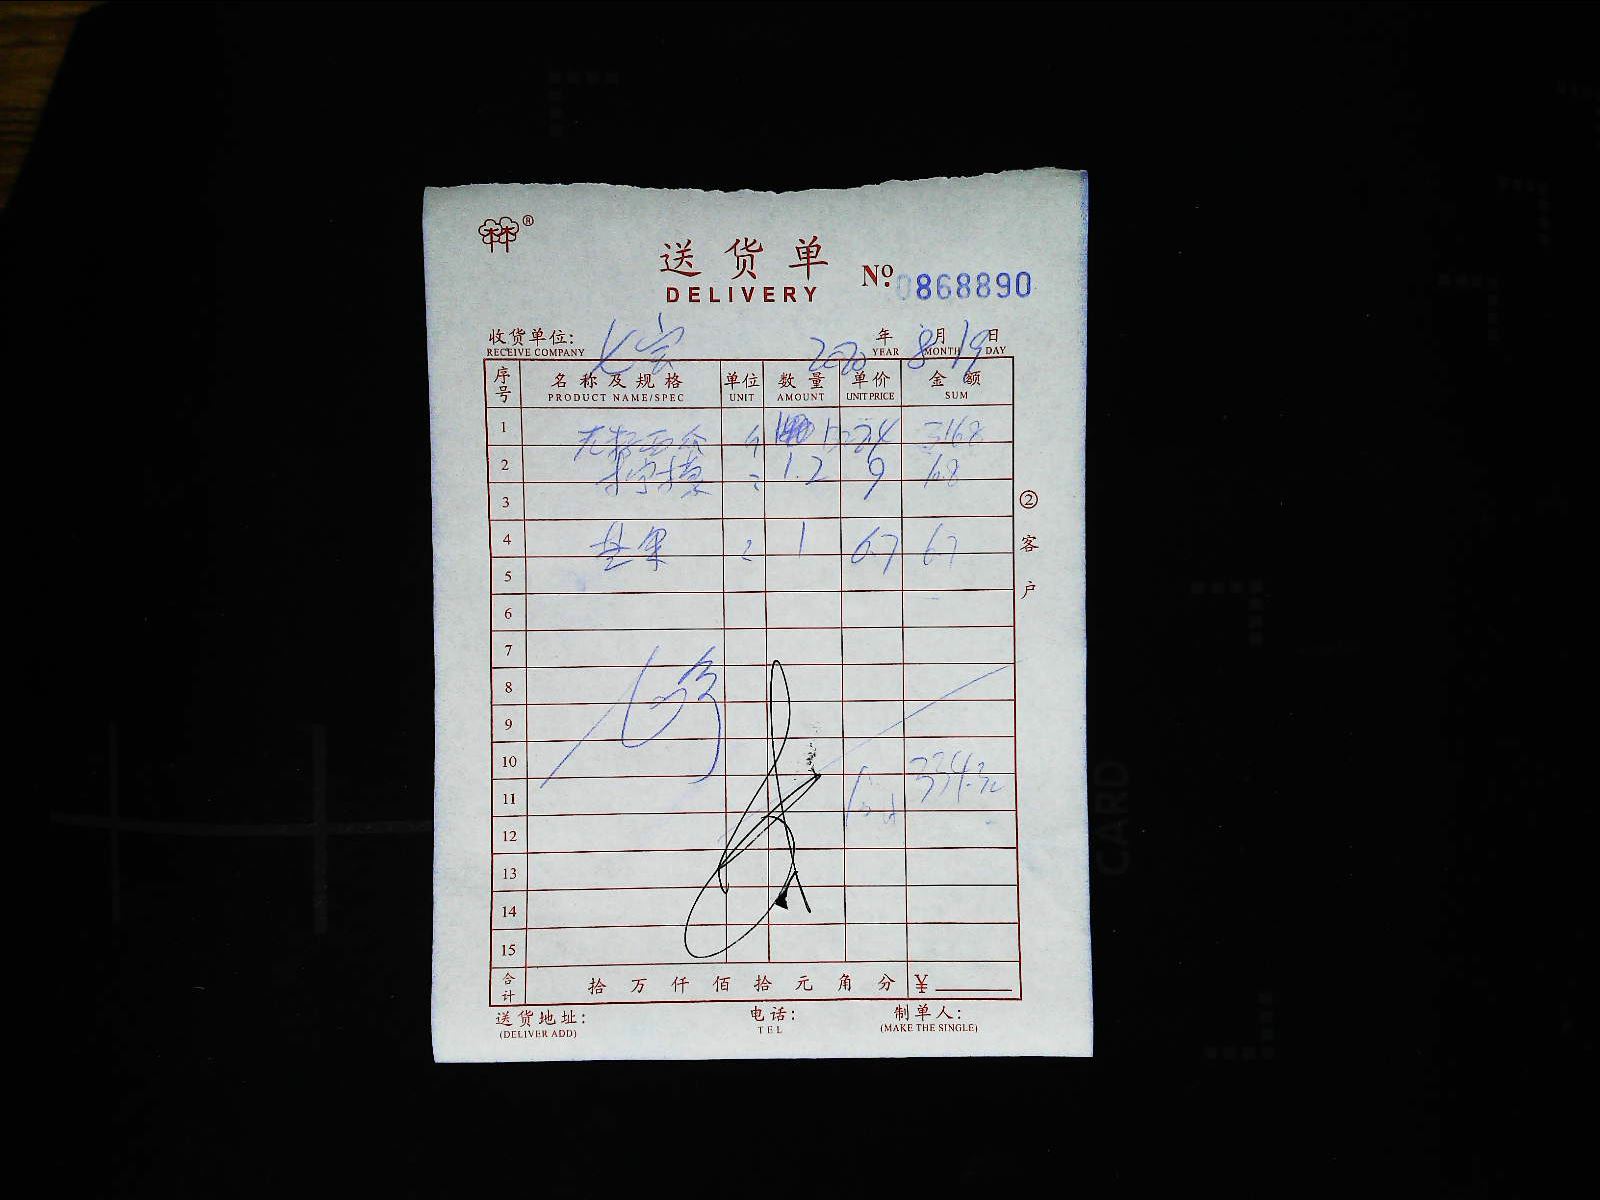 送货单
DELIVERY
№ 0868890
收货单位: 2020年8月19日
RECEIVE COMPANY YEAR MONTH DAY
序号 名称及规格 单位 数量 单价 金额
PRODUCT NAME/SPEC UNIT AMOUNT UNIT PRICE SUM
1 无籽西瓜 2.4 316.8
2 柠檬 1.2 9 10.8
3
4 1 6.7 6.7
5
6
7
8
9
10
11 334.3元
12
13
14
15
合计 拾 万 仟 佰 拾 元 角 分 ¥
送货地址: 电话: 制单人:
(DELIVER ADD) TEL (MAKE THE SINGLE)
②客户